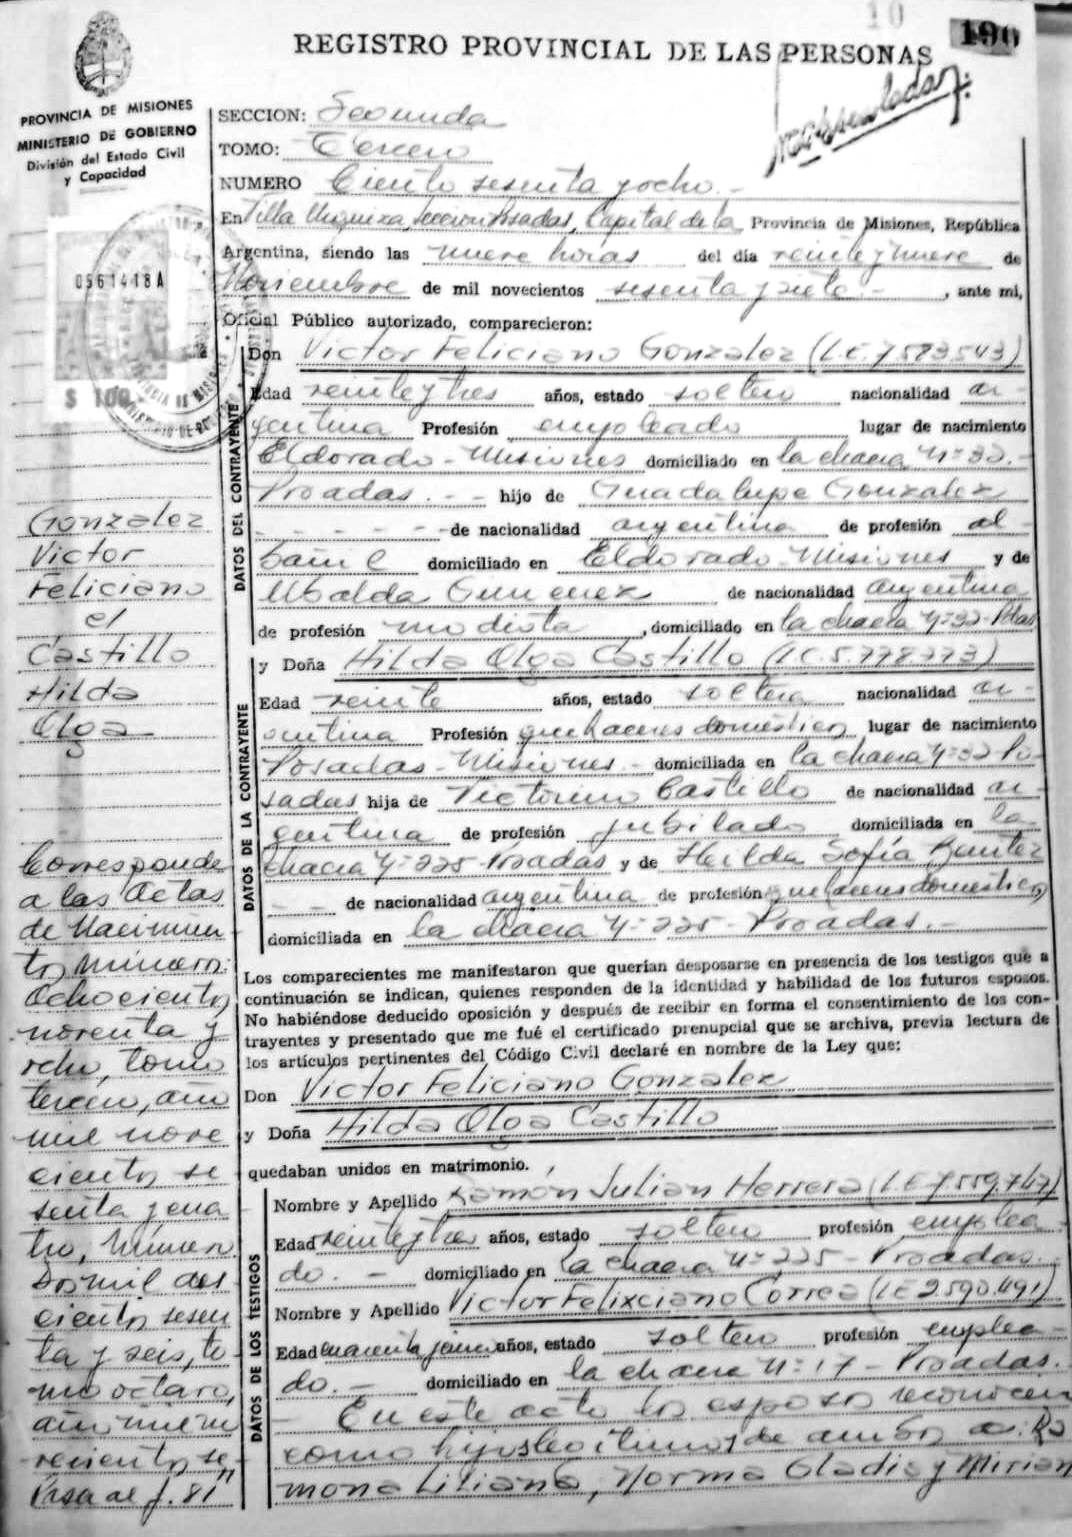 10
190
REGISTRO PROVINCIAL DE LAS PERSONAS
PROVINCIA DE MISIONES
MINISTERIO DE GOBIERNO
División del Estado Civil
y Capacidad
0561418A
$ 100
SECCION: Segunda
TOMO: Tercero
NUMERO Ciento sesenta y ocho.-
En Villa Urquiza, Seccion Posadas, Capital de la Provincia de Misiones, República
Argentina, siendo las nueve horas del día veintey nueve de
Noviembre de mil novecientos sesenta y siete.- , ante mi,
Oficial Público autorizado, comparecieron:
DATOS DEL CONTRAYENTE
Don Victor Feliciano Gonzalez (L.E. 7.583.543)
Edad veinteytres años, estado soltero nacionalidad ar-
gentina Profesión empleado lugar de nacimiento
Eldorado - Misiones domiciliado en la chacra Nº 32.-
Posadas. - - hijo de Guadalupe Gonzalez
- - - - - - de nacionalidad argentina de profesión al-
bañil domiciliado en Eldorado - Misiones y de
Ubalda Gimenez de nacionalidad argentina
de profesión modista , domiciliado en la chacra Nº 32-Pdas
DATOS DE LA CONTRAYENTE
y Doña Hilda Olga Castillo (L.C. 5.778.773)
Edad veinte años, estado soltera nacionalidad ar-
gentina Profesión quehaceres domésticos lugar de nacimiento
Posadas - Misiones - domiciliada en la chacra Nº 32 Po-
sadas hija de Victorino Castillo de nacionalidad ar-
gentina de profesión jubilado domiciliada en la
chacra Nº 225-Posadas y de Hilda Sofía Benitez
- - de nacionalidad argentina de profesión quehaceres domésticos
domiciliada en la chacra Nº 225 - Posadas.-
Los comparecientes me manifestaron que querían desposarse en presencia de los testigos que a
continuación se indican, quienes responden de la identidad y habilidad de los futuros esposos.
No habiéndose deducido oposición y después de recibir en forma el consentimiento de los con-
trayentes y presentado que me fué el certificado prenupcial que se archiva, previa lectura de
los artículos pertinentes del Código Civil declaré en nombre de la Ley que:
Don Victor Feliciano Gonzalez
y Doña Hilda Olga Castillo
quedaban unidos en matrimonio.
DATOS DE LOS TESTIGOS
Nombre y Apellido Ramón Julian Herrera (L.E. 7.559.767)
Edad veinteytres años, estado soltero profesión emplea-
do. - domiciliado en la chacra Nº 225 - Posadas.
Nombre y Apellido Victor Felixciano Correa (L.E. 2.590.491)
Edad años, estado soltero profesión emplea-
do. - domiciliado en la chacra Nº 17 - Posadas.
- En este acto los esposos reconocen
como hijos legítimos de ambos a: Ra
mona Liliana, Norma Gladis y Mirian
Gonzalez
Victor
Feliciano
c/
Castillo
Hilda
Olga
Corresponde
a las Actas
de Nacimien
tos número:
Ochocientos
noventa y
ocho, tomo
tercero, año
mil nove
cientos se
senta y cua
tro, número
dos mil dos
cientos sesen
ta y seis, to
mo octavo,
año mil no
vecientos se-
Pasa al f. 81